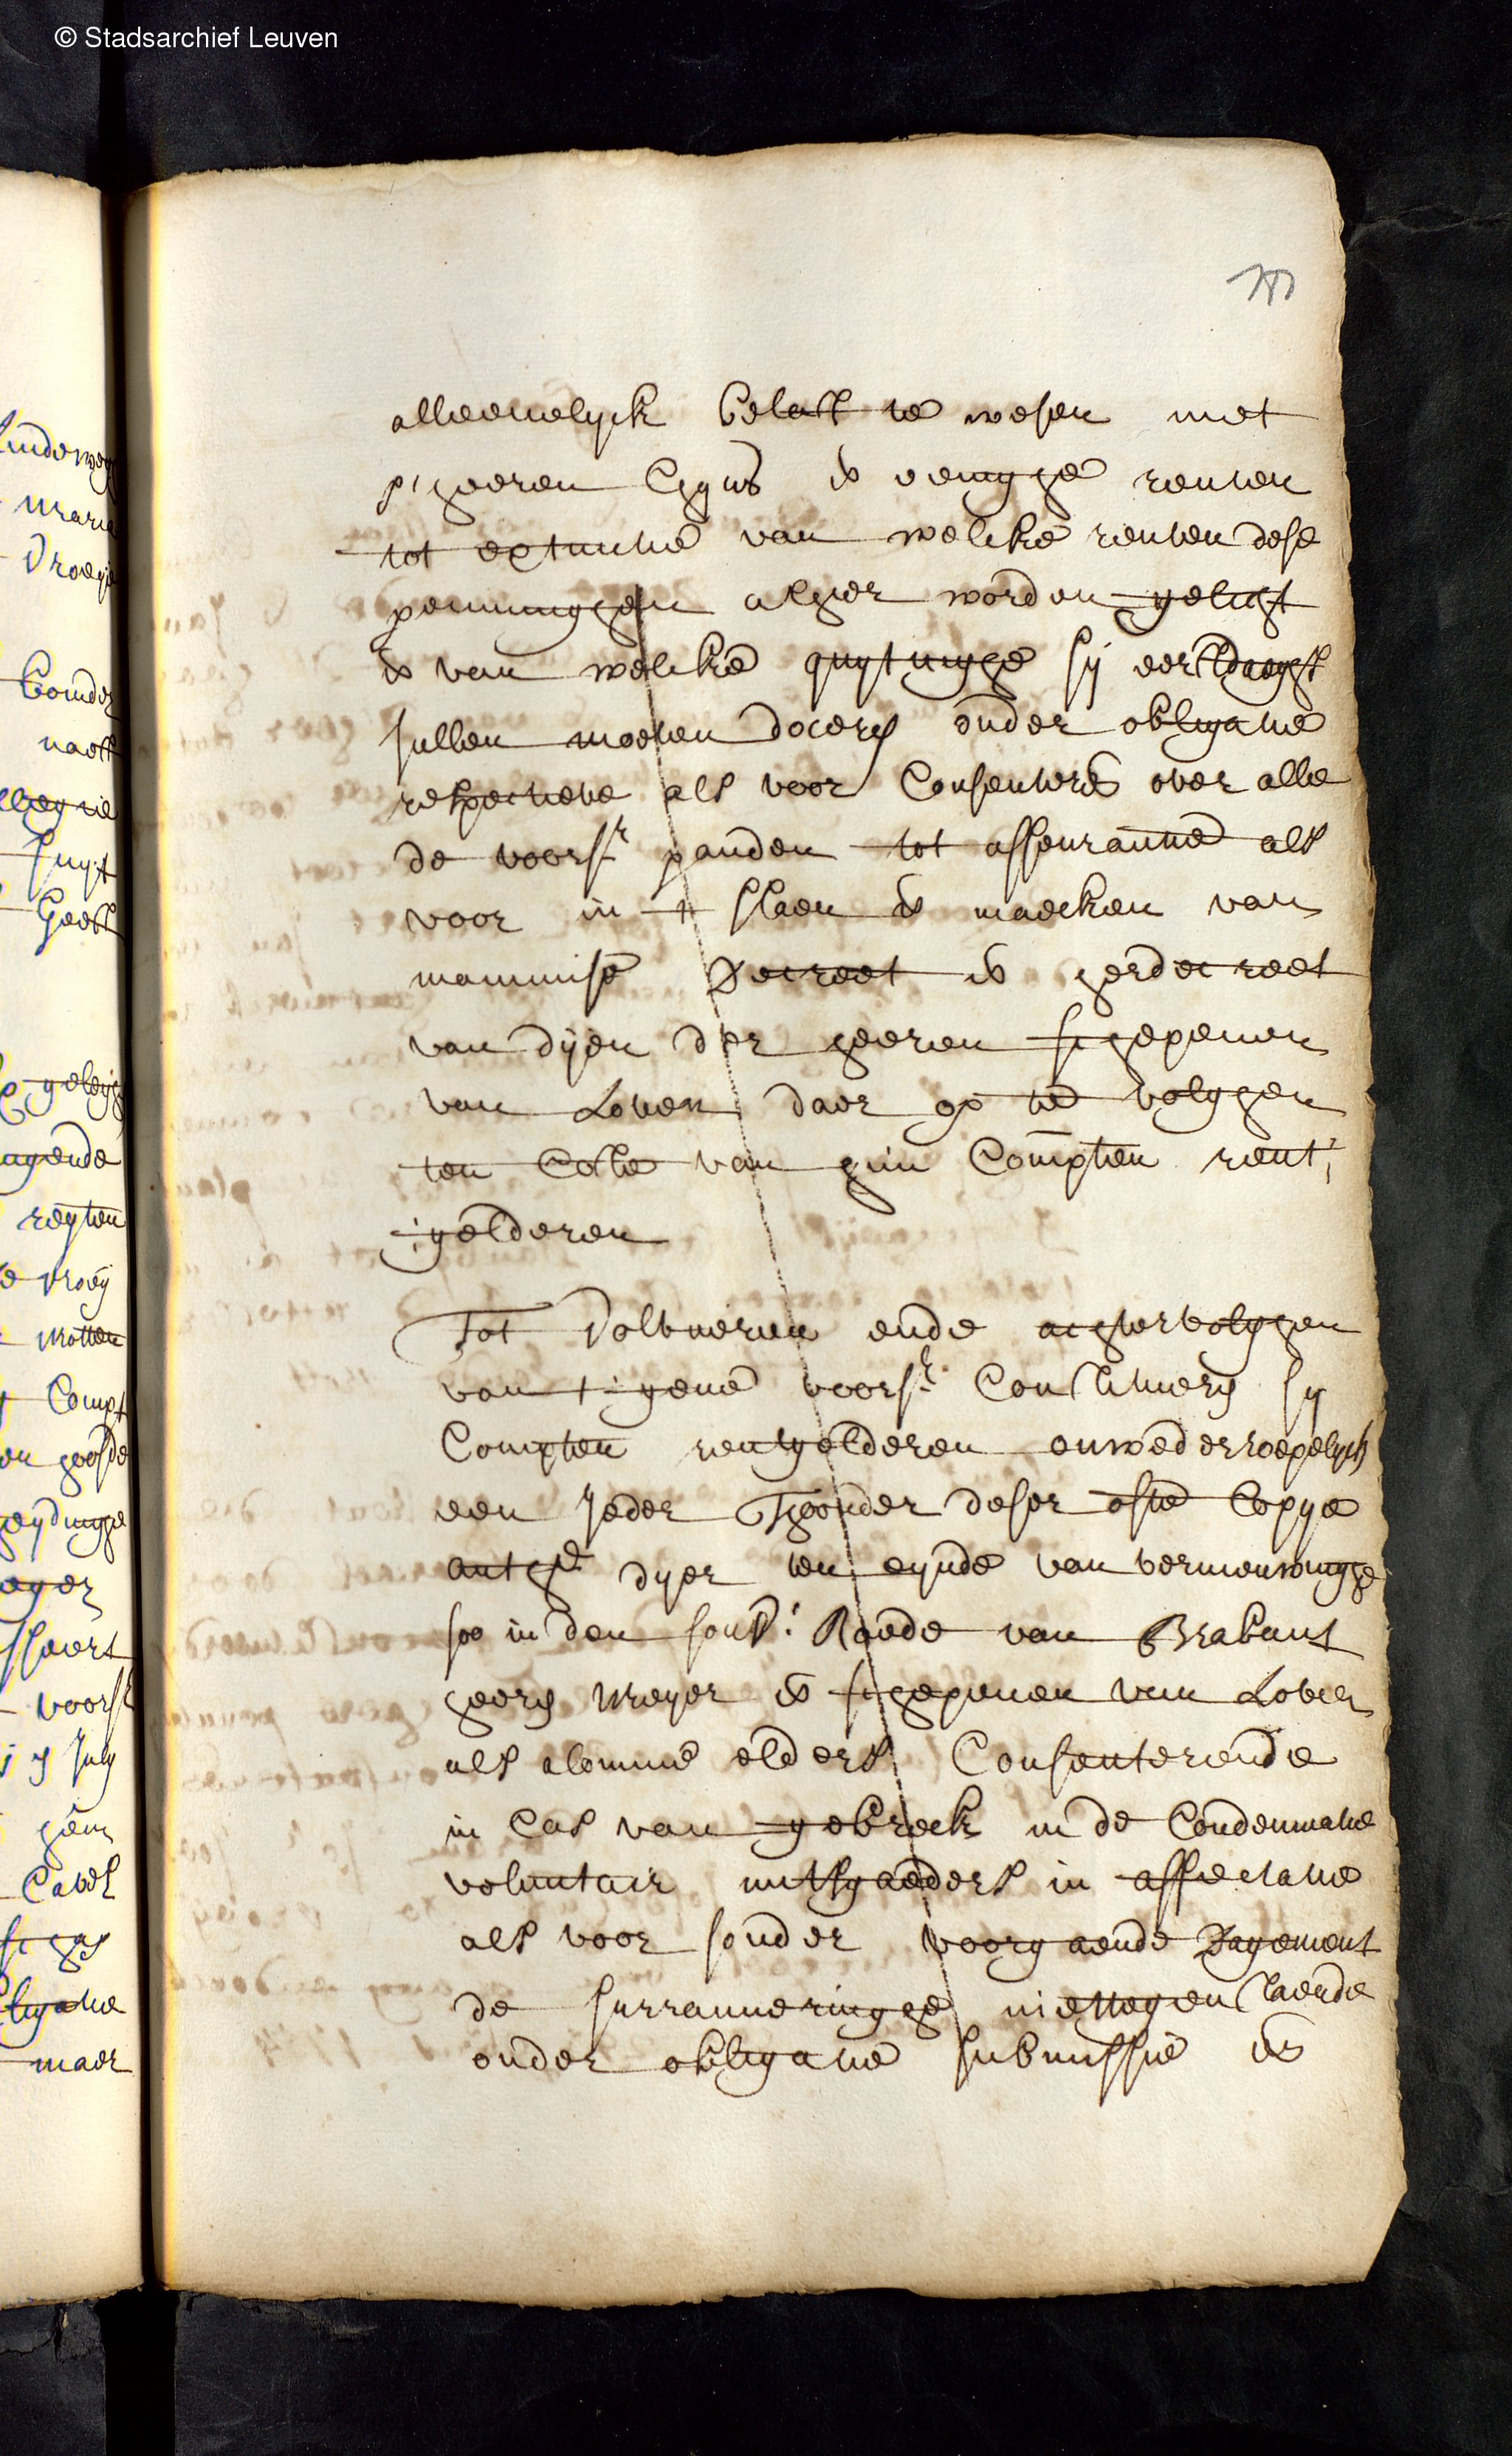 © Stadsarchief Leuven
alleenelyck belast te wesen met
s'heeren chyns & eenighe renten
tot extinctie van welcke renten dese
penninghen alhier worden gelicht
& van welcke quytinghe sij eerstdaeghs
sullen moeten doceren onder obligatie
respective als voor consenteren over alle
de voors. panden tot asseurantie als
voor in 't slaen & maecken van
mainmise decreet & herdecreet
van dijen der heeren schepenen
van Loven daer op te volghen
ten coste van hun Compten rent
gelderen
Tot volbueren ende achtervolghen
van t'gene voors. Constitueren sy
Compten rentgelderen onwederroepelyck
een jeder Thoonder deser ofte Copye
auth. dyer ten eynde van vernieuwinghe
soo in den souv. Raede van Brabant
heeren Meyer & schepenen van Loven
als alomme elders Consenterende
in cas van gebreck in de Condemnatie
voluntair mitsgaeders in affectatie
als voor sonder voorgaende Dagement
de surranneringhe niettegenstaende
onder obligatie submissie &
Linden
Marie
naest
Geest
reyten
Motten
Compt
voors.
July
maer